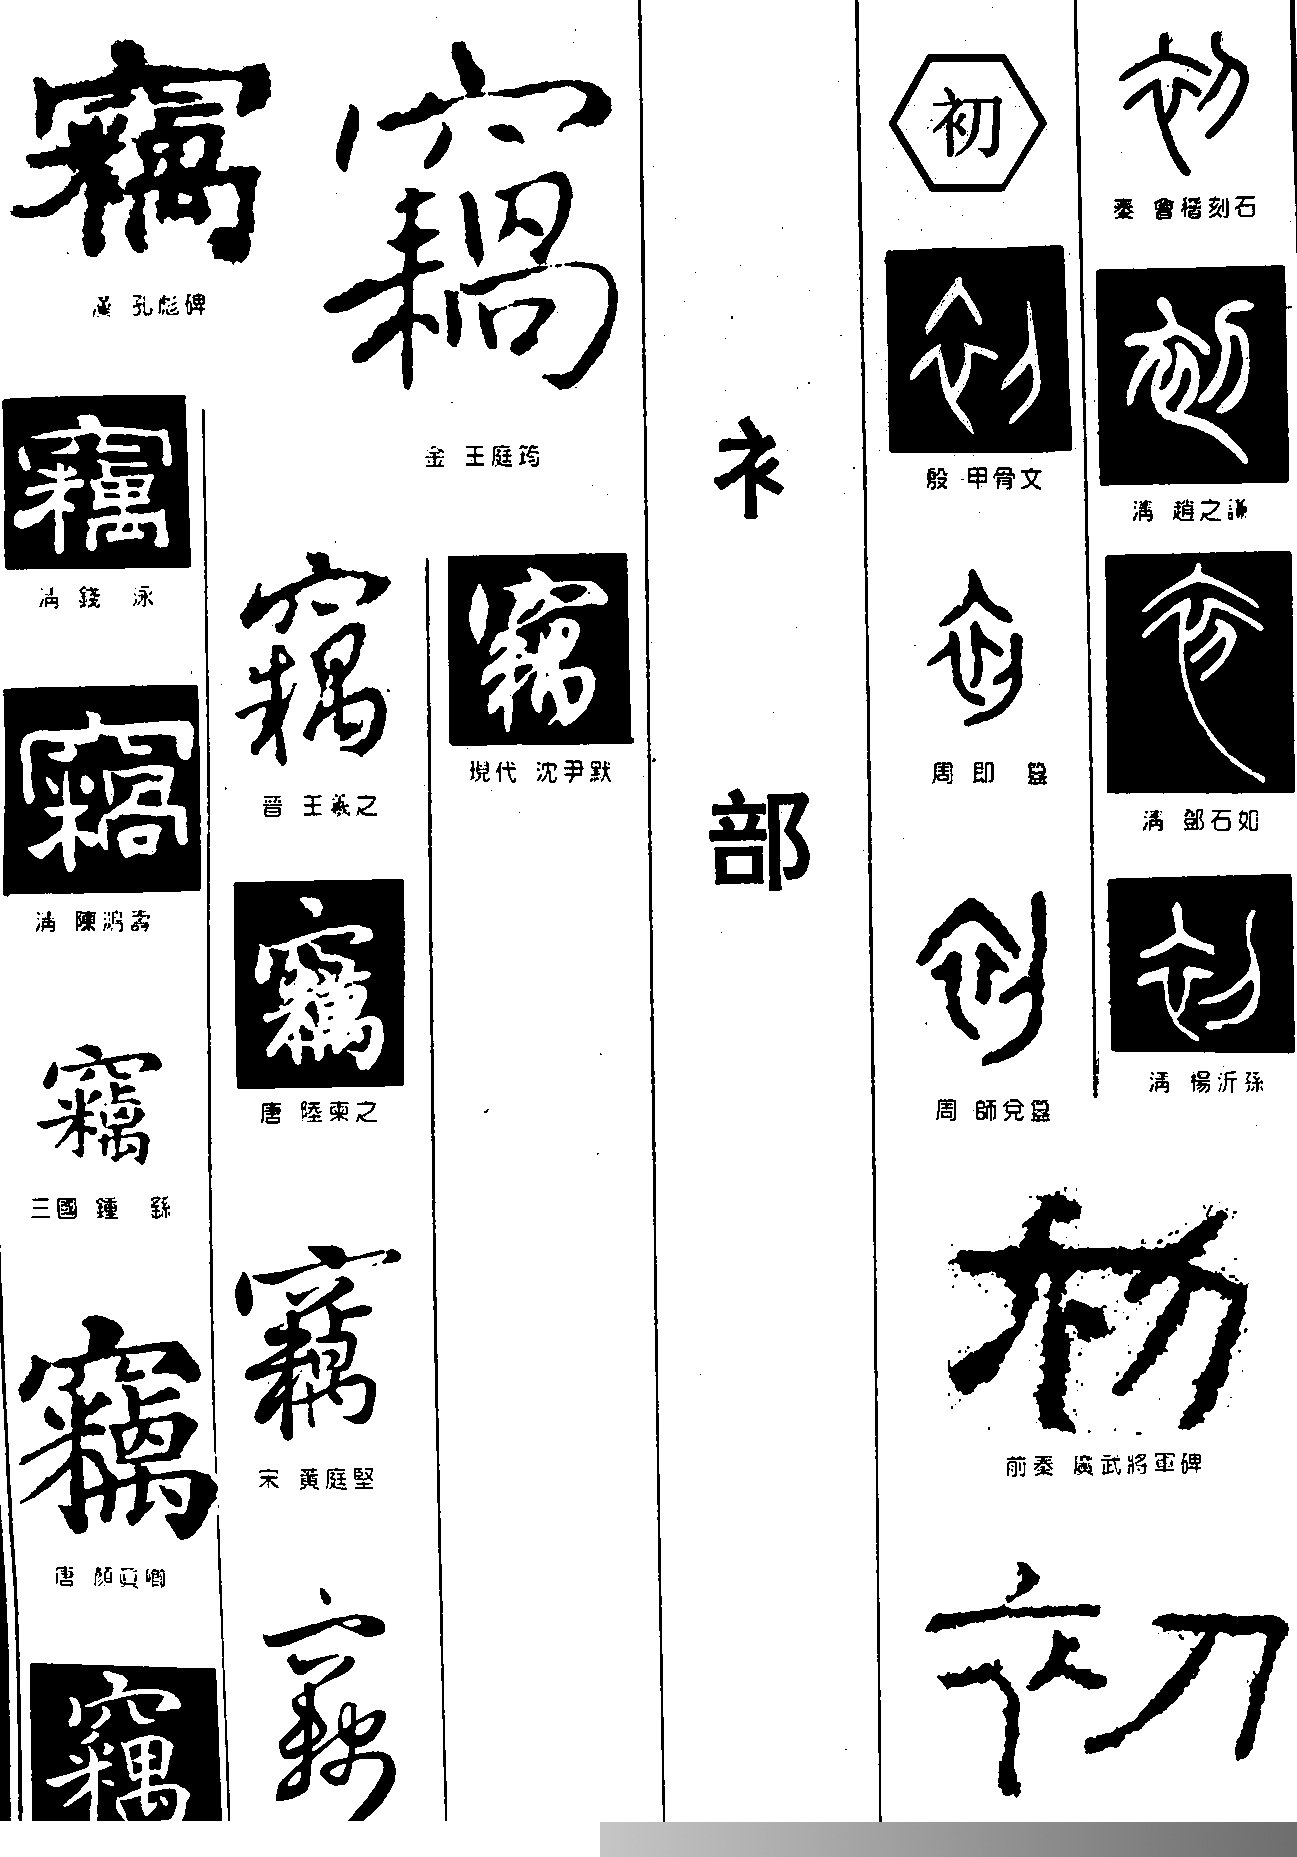 初
殷 甲骨文
周 即 簋
周 師兌簋
前秦 廣武將軍碑
初
秦 會稽刻石
清 趙之謙
清 鄧石如
清 楊沂孫
衤
部
竊
金 王庭筠
現代 沈尹默
竊
晉 王羲之
唐 陸柬之
宋 黃庭堅
竊
漢 孔彪碑
清 錢 泳
清 陳鴻壽
三國 鍾 繇
唐 顏真卿